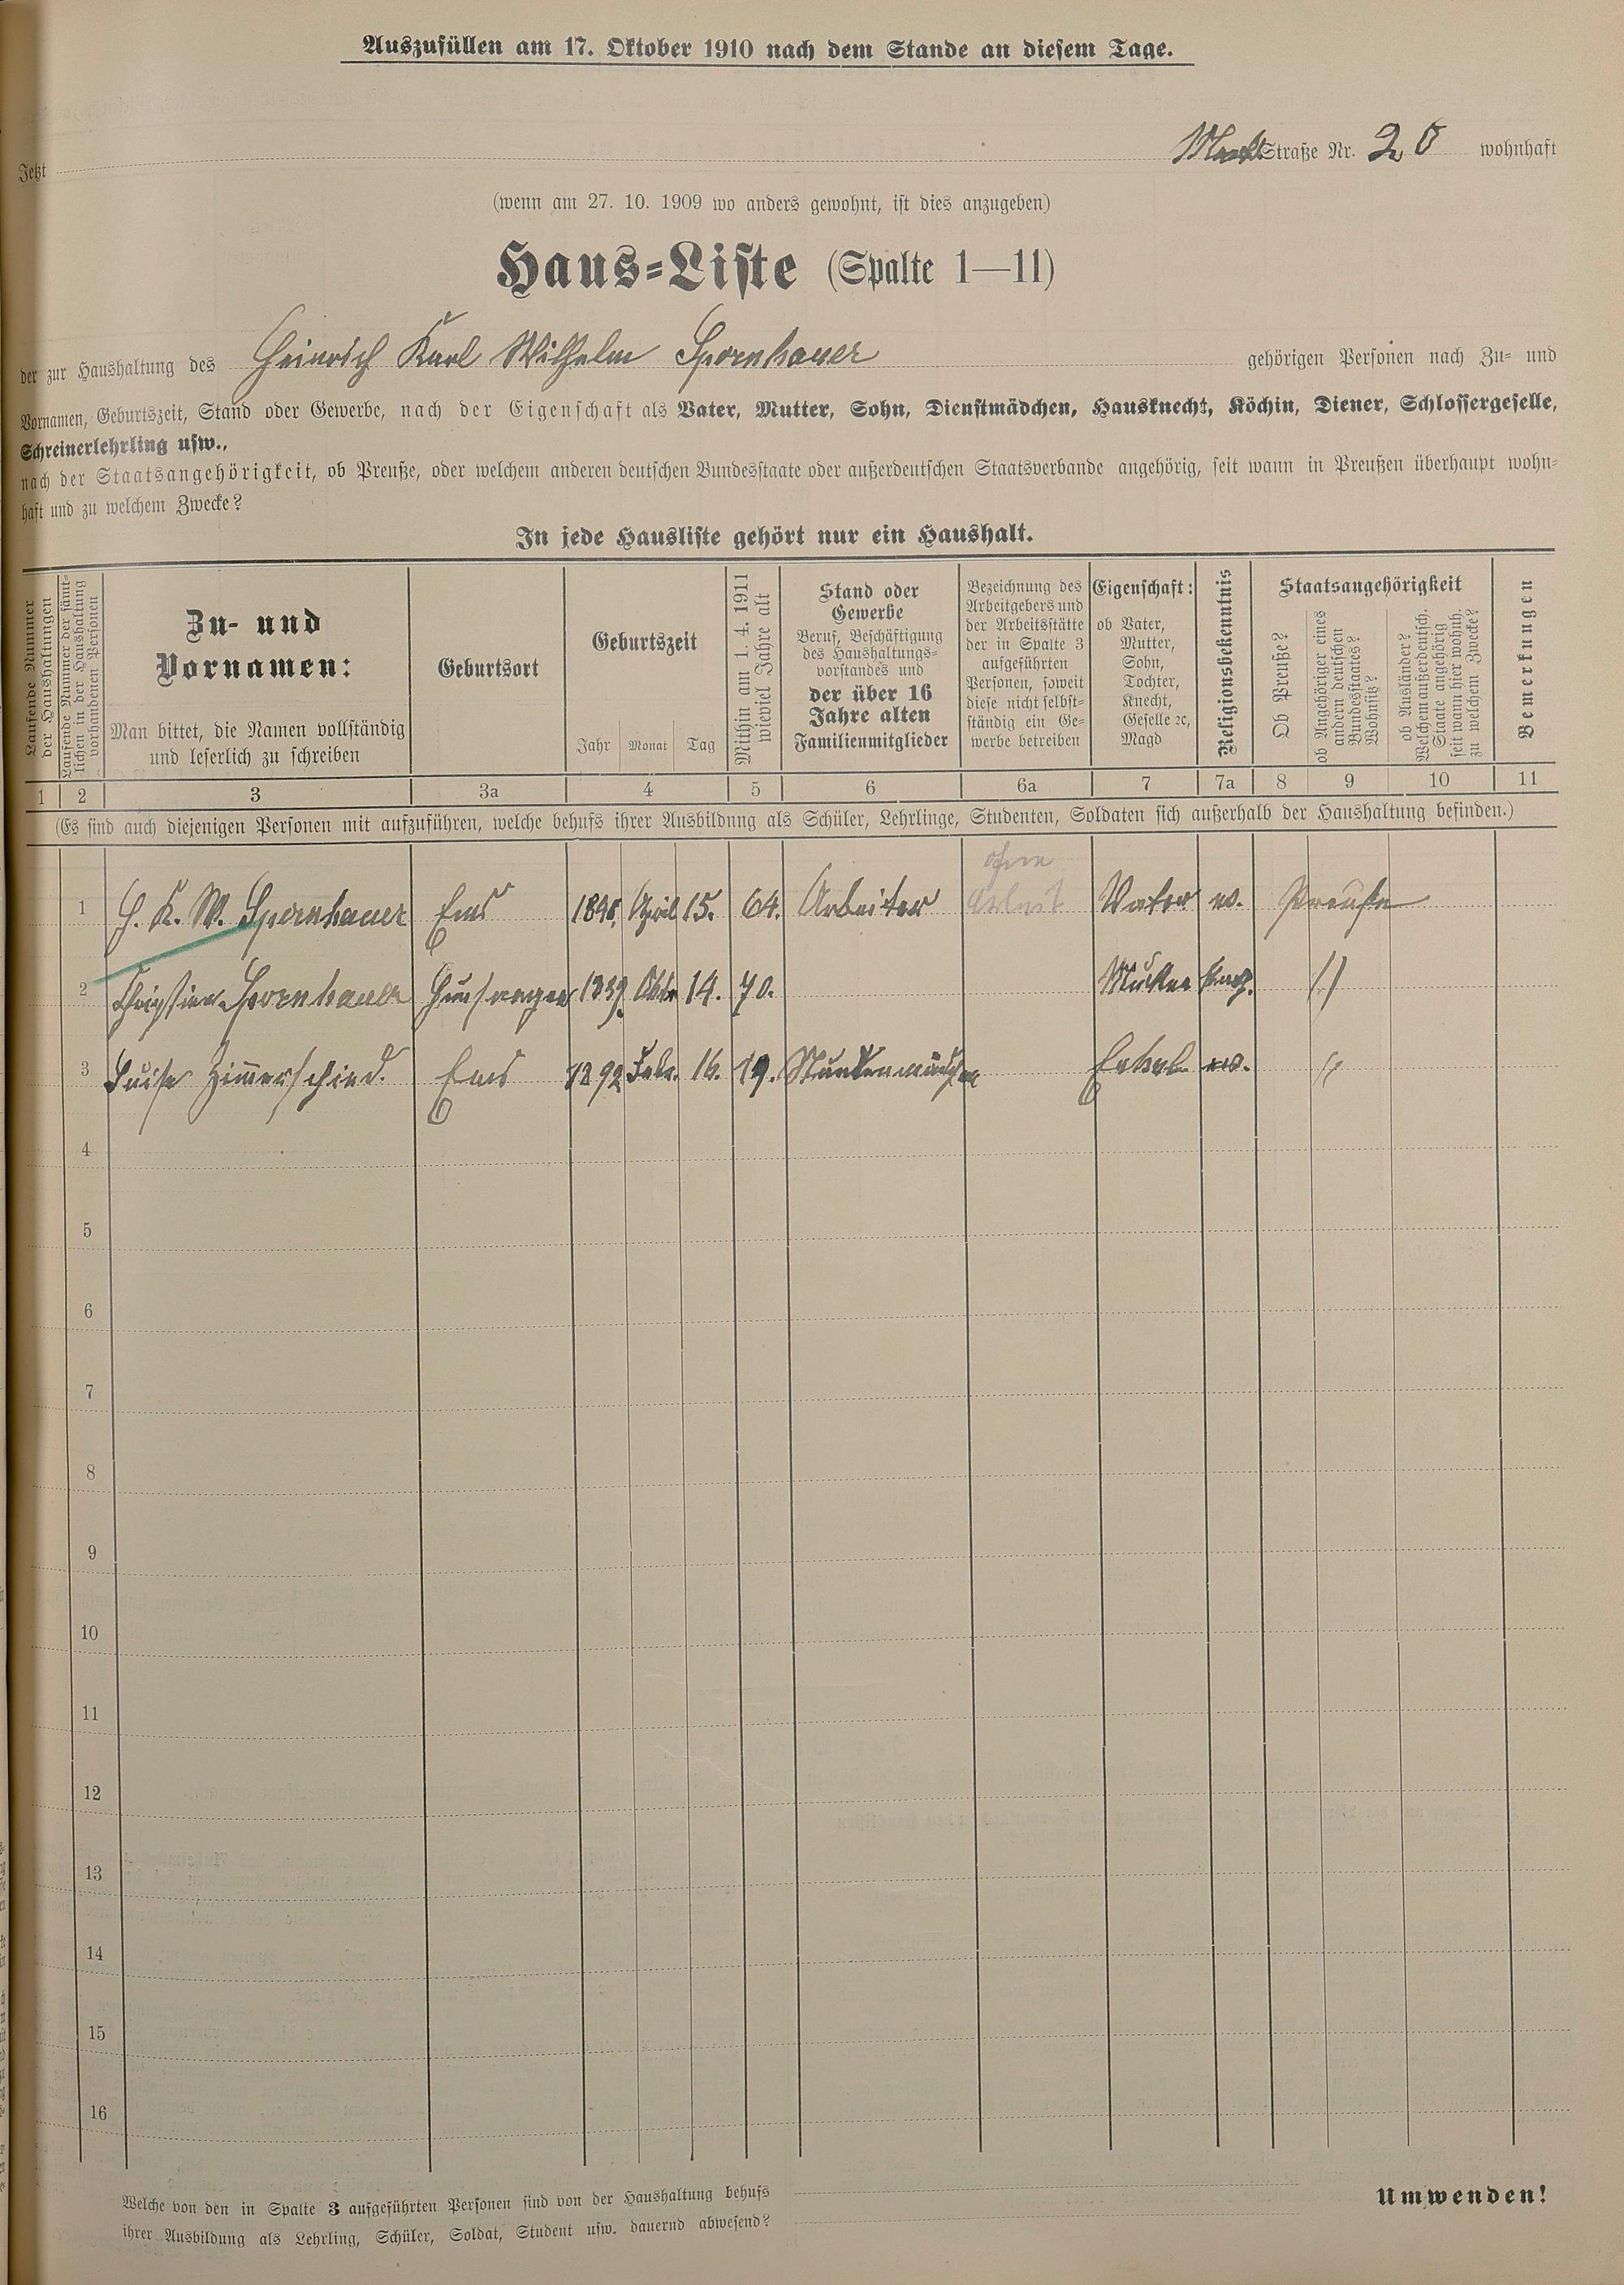 Auszufüllen am 17. Oktober 1910 nach dem Stande an diesem Tage.
Jetzt Markt Straße Nr. 20 wohnhaft
(wenn am 27. 10. 1909 wo anders gewohnt, ist dies anzugeben)
Haus-Liste (Spalte 1—11)
der zur Haushaltung des Heinrich Karl Wilhelm Spornhauer gehörigen Personen nach Zu- und
Vornamen, Geburtszeit, Stand oder Gewerbe, nach der Eigenschaft als Vater, Mutter, Sohn, Dienstmädchen, Hausknecht, Köchin, Diener, Schlossergeselle,
Schreinerlehrling usw.,
nach der Staatsangehörigkeit, ob Preuße, oder welchem anderen deutschen Bundesstaate oder außerdeutschen Staatsverbande angehörig, seit wann in Preußen überhaupt wohn-
haft und zu welchem Zwecke?
In jede Hausliste gehört nur ein Haushalt.
Laufende Nummer
der Haushaltungen
Laufende Nummer der sämt-
lichen in der Haushaltung
vorhandenen Personen
Zu- und
Vornamen:
Man bittet, die Namen vollständig
und leserlich zu schreiben
Geburtsort
Geburtszeit
Jahr Monat Tag
Mithin am 1. 4. 1911
wieviel Jahre alt
Stand oder
Gewerbe
Beruf, Beschäftigung
des Haushaltungs-
vorstandes und
der über 16
Jahre alten
Familienmitglieder
Bezeichnung des
Arbeitgebers und
der Arbeitsstätte
der in Spalte 3
aufgeführten
Personen, soweit
diese nicht selbst-
ständig ein Ge-
werbe betreiben
Eigenschaft:
ob Vater,
Mutter,
Sohn,
Tochter,
Knecht,
Geselle ꝛc,
Magd
Religionsbekenntnis
Staatsangehörigkeit
Ob Preuße?
ob Angehöriger eines
andern deutschen
Bundesstaates?
Wohnsitz?
ob Ausländer?
Welchem außerdeutsch.
Staate angehörig
seit wann hier wohnh.
zu welchem Zwecke?
Bemerkungen
1 2 3 3a 4 5 6 6a 7 7a 8 9 10 11
(Es sind auch diejenigen Personen mit aufzuführen, welche behufs ihrer Ausbildung als Schüler, Lehrlinge, Studenten, Soldaten sich außerhalb der Haushaltung befinden.)
ohne
1 H. K. W. Spornhauer Ems April 15. 64. Arbeiter Arbeit Vater ev. Preuße
2 Spornhauer 1839. Okt. 14. 70. Mutter "
3 Luise Zimmerschied. Ems 1892 Febr. 16. 19. Enkel ev. "
4
5
6
7
8
9
10
11
12
13
14
15
16
Welche von den in Spalte 3 aufgeführten Personen sind von der Haushaltung behufs
ihrer Ausbildung als Lehrling, Schüler, Soldat, Student usw. dauernd abwesend?
Umwenden!